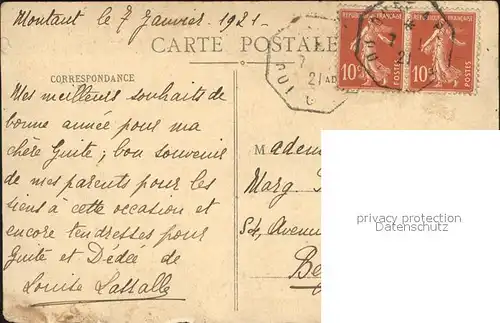 Montaut le 7 Janvier. 1921.
CARTE POSTALE
RÉPUBLIQUE FRANÇAISE RÉPUBLIQUE FRANÇAISE
10c POSTES 10c POSTES
7
21
CORRESPONDANCE
Mes meilleurs souhaits de
bonne année pour ma
chère Guite; bon souvenir
de mes parents pour les
siens à cette occasion et
encore tendresses pour
Guite et Dédée de
Louise Lassalle
Madem
Marg.
54, Avenue
privacy protection
Datenschutz